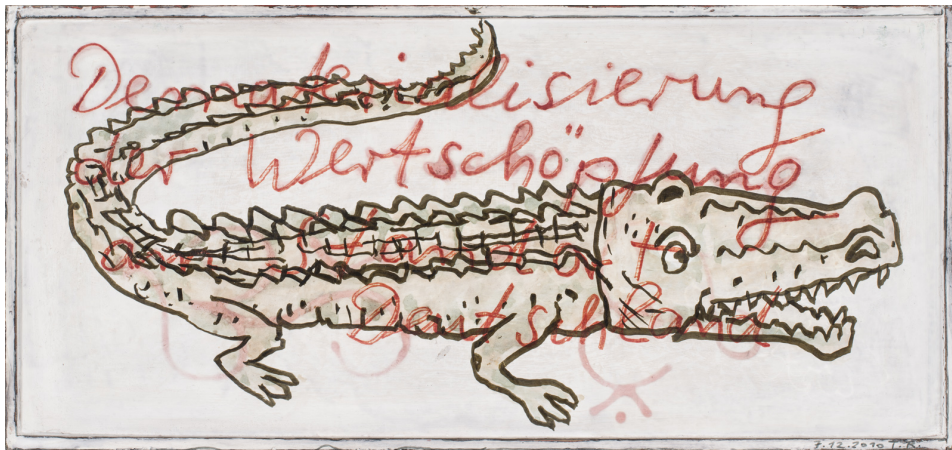 Dematerialisierung
der Wertschöpfung
am Standort
Deutschland
7.12.2010 T.R.